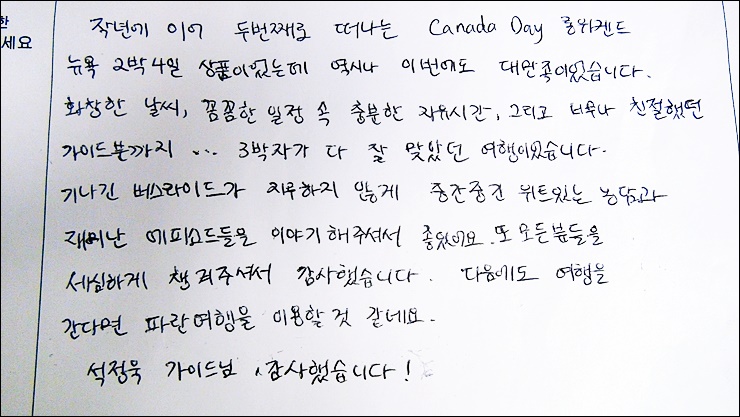 한
세요
작년에 이어 두번째로 떠나는 Canada Day 롱위켄드
뉴욕 2박4일 상품이었는데 역시나 이번에도 대만족이었습니다.
화창한 날씨, 꼼꼼한 일정 속 충분한 자유시간, 그리고 너무나 친절했던
가이드분까지 ... 3박자가 다 잘 맞았던 여행이었습니다.
기나긴 버스라이드가 지루하지 않게 중간중간 위트있는 농담과
재미난 에피소드들을 이야기해주셔서 좋았어요. 또 모든분들을
세심하게 챙겨주셔서 감사했습니다. 다음에도 여행을
간다면 파란여행을 이용할것 같네요.
석정욱 가이드님, 감사했습니다!